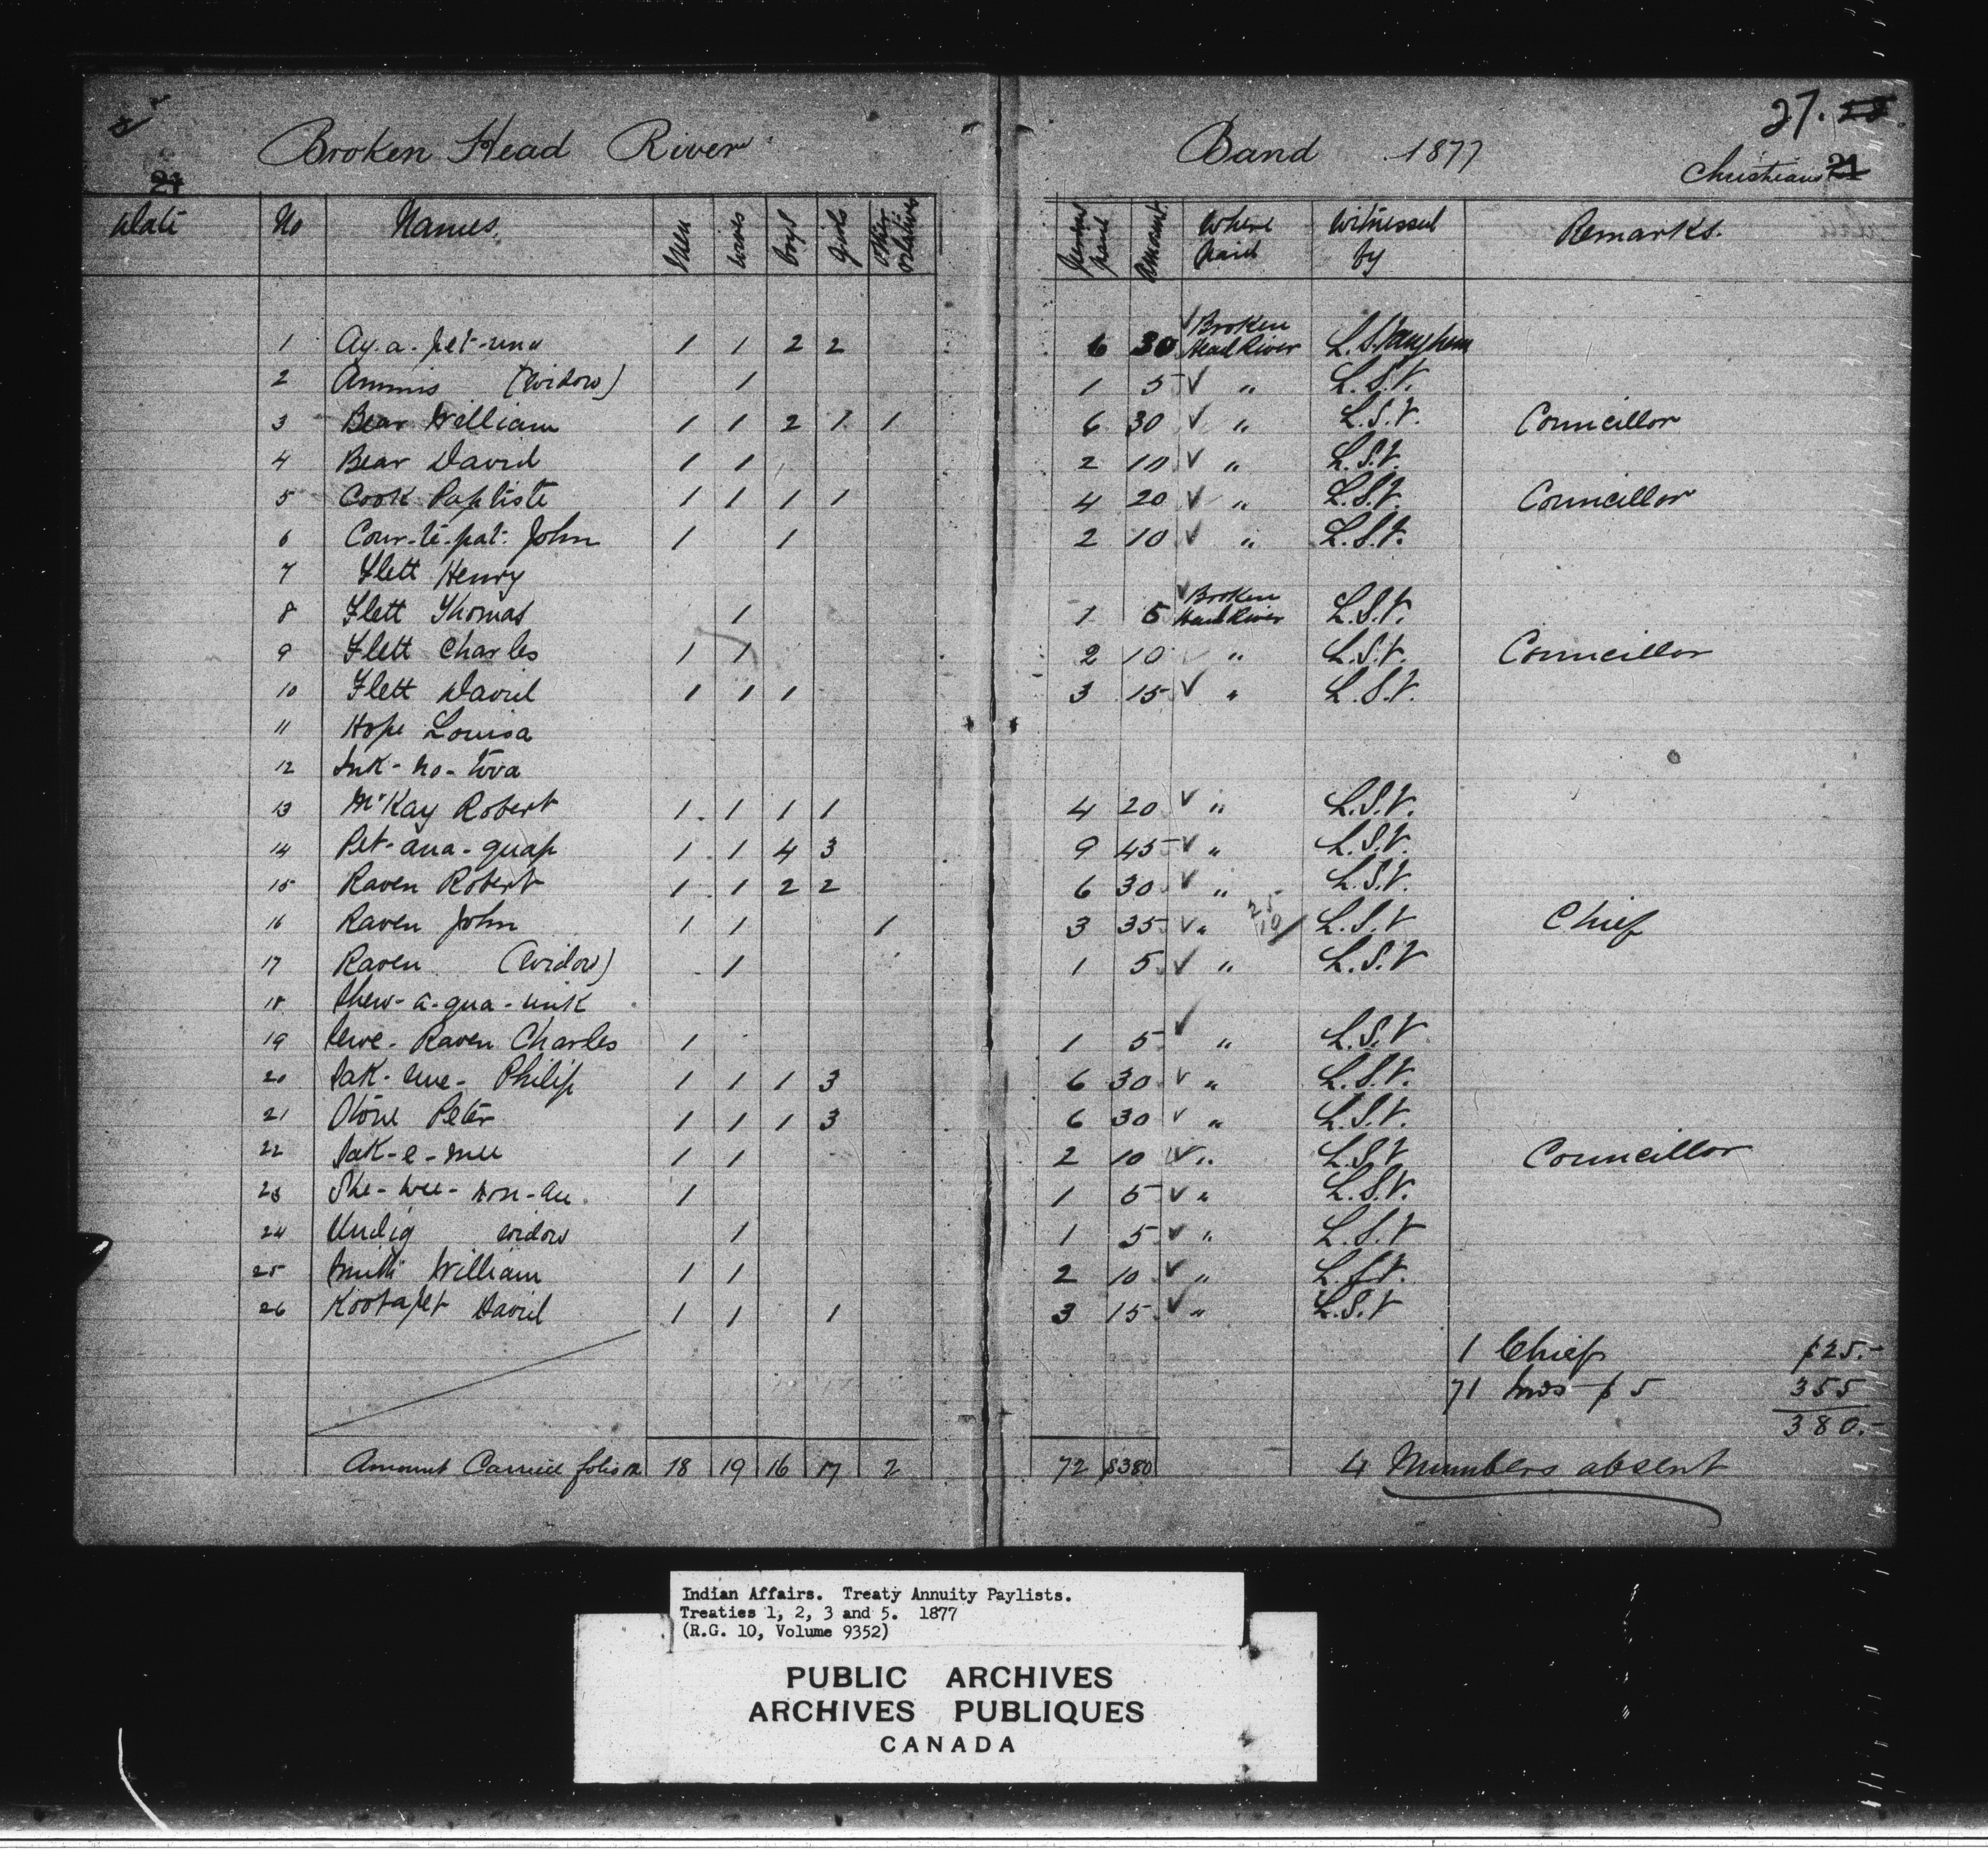 Broken Head River Band 1877
27. 28.
Christians 21
21
Date No Names Men Wives boys girls Other Relatives Persons paid Amount. Where Paid Witnessed by Remarks.
1 1 1 2 2 6 30 ✓ Broken Head River L. S. Vaughan
2 Ammis (Widow) 1 1 5 ✓ " L.S.V.
3 Bear William 1 1 2 1 1 6 30 ✓ " L.S.V. Councillor
4 Bear David 1 1 2 10 ✓ " L.S.V.
5 Cook Baptiste 1 1 1 1 4 20 ✓ " L.S.V. Councillor
6 Cour-te-pat. John 1 1 2 10 ✓ " L.S.V.
7 Flett Henry
8 Flett Thomas 1 1 5 ✓ Broken Head River L.S.V.
9 Flett Charles 1 1 2 10 ✓ " L.S.V. Councillor
10 Flett David 1 1 1 3 15 ✓ " L.S.V.
11 Hope Louisa
12
13 McKay Robert 1 1 1 1 4 20 ✓ " L.S.V.
14 Pet-ana-quap 1 1 4 3 9 45 ✓ " L.S.V.
15 Raven Robert 1 1 2 2 6 30 ✓ " L.S.V.
16 Raven John 1 1 1 3 35 ✓ " 25 10/ L.S.V Chief
17 Raven (Widow) 1 1 5 ✓ " L.S.V
18
19 Raven Charles 1 1 5 ✓ " L.S.V
20 Philip 1 1 1 3 6 30 ✓ " L.S.V.
21 Stone Peter 1 1 1 3 6 30 ✓ " L.S.V.
22 1 1 2 10 ✓ " L.S.V Councillor
23 1 1 5 ✓ " L.S.V.
24 Undig widow 1 1 5 ✓ " L.S.V
25 Smith William 1 1 2 10 ✓ " L.S.V.
26 Kootapet David 1 1 1 3 15 ✓ " L.S.V
1 Chief $25.-
71 Inds $5 355
380.-
Amount Carried folio 18 19 16 17 2 72 $380 4 Numbers absent
Indian Affairs. Treaty Annuity Paylists.
Treaties 1, 2, 3 and 5. 1877
(R.G. 10, Volume 9352)
PUBLIC ARCHIVES
ARCHIVES PUBLIQUES
CANADA